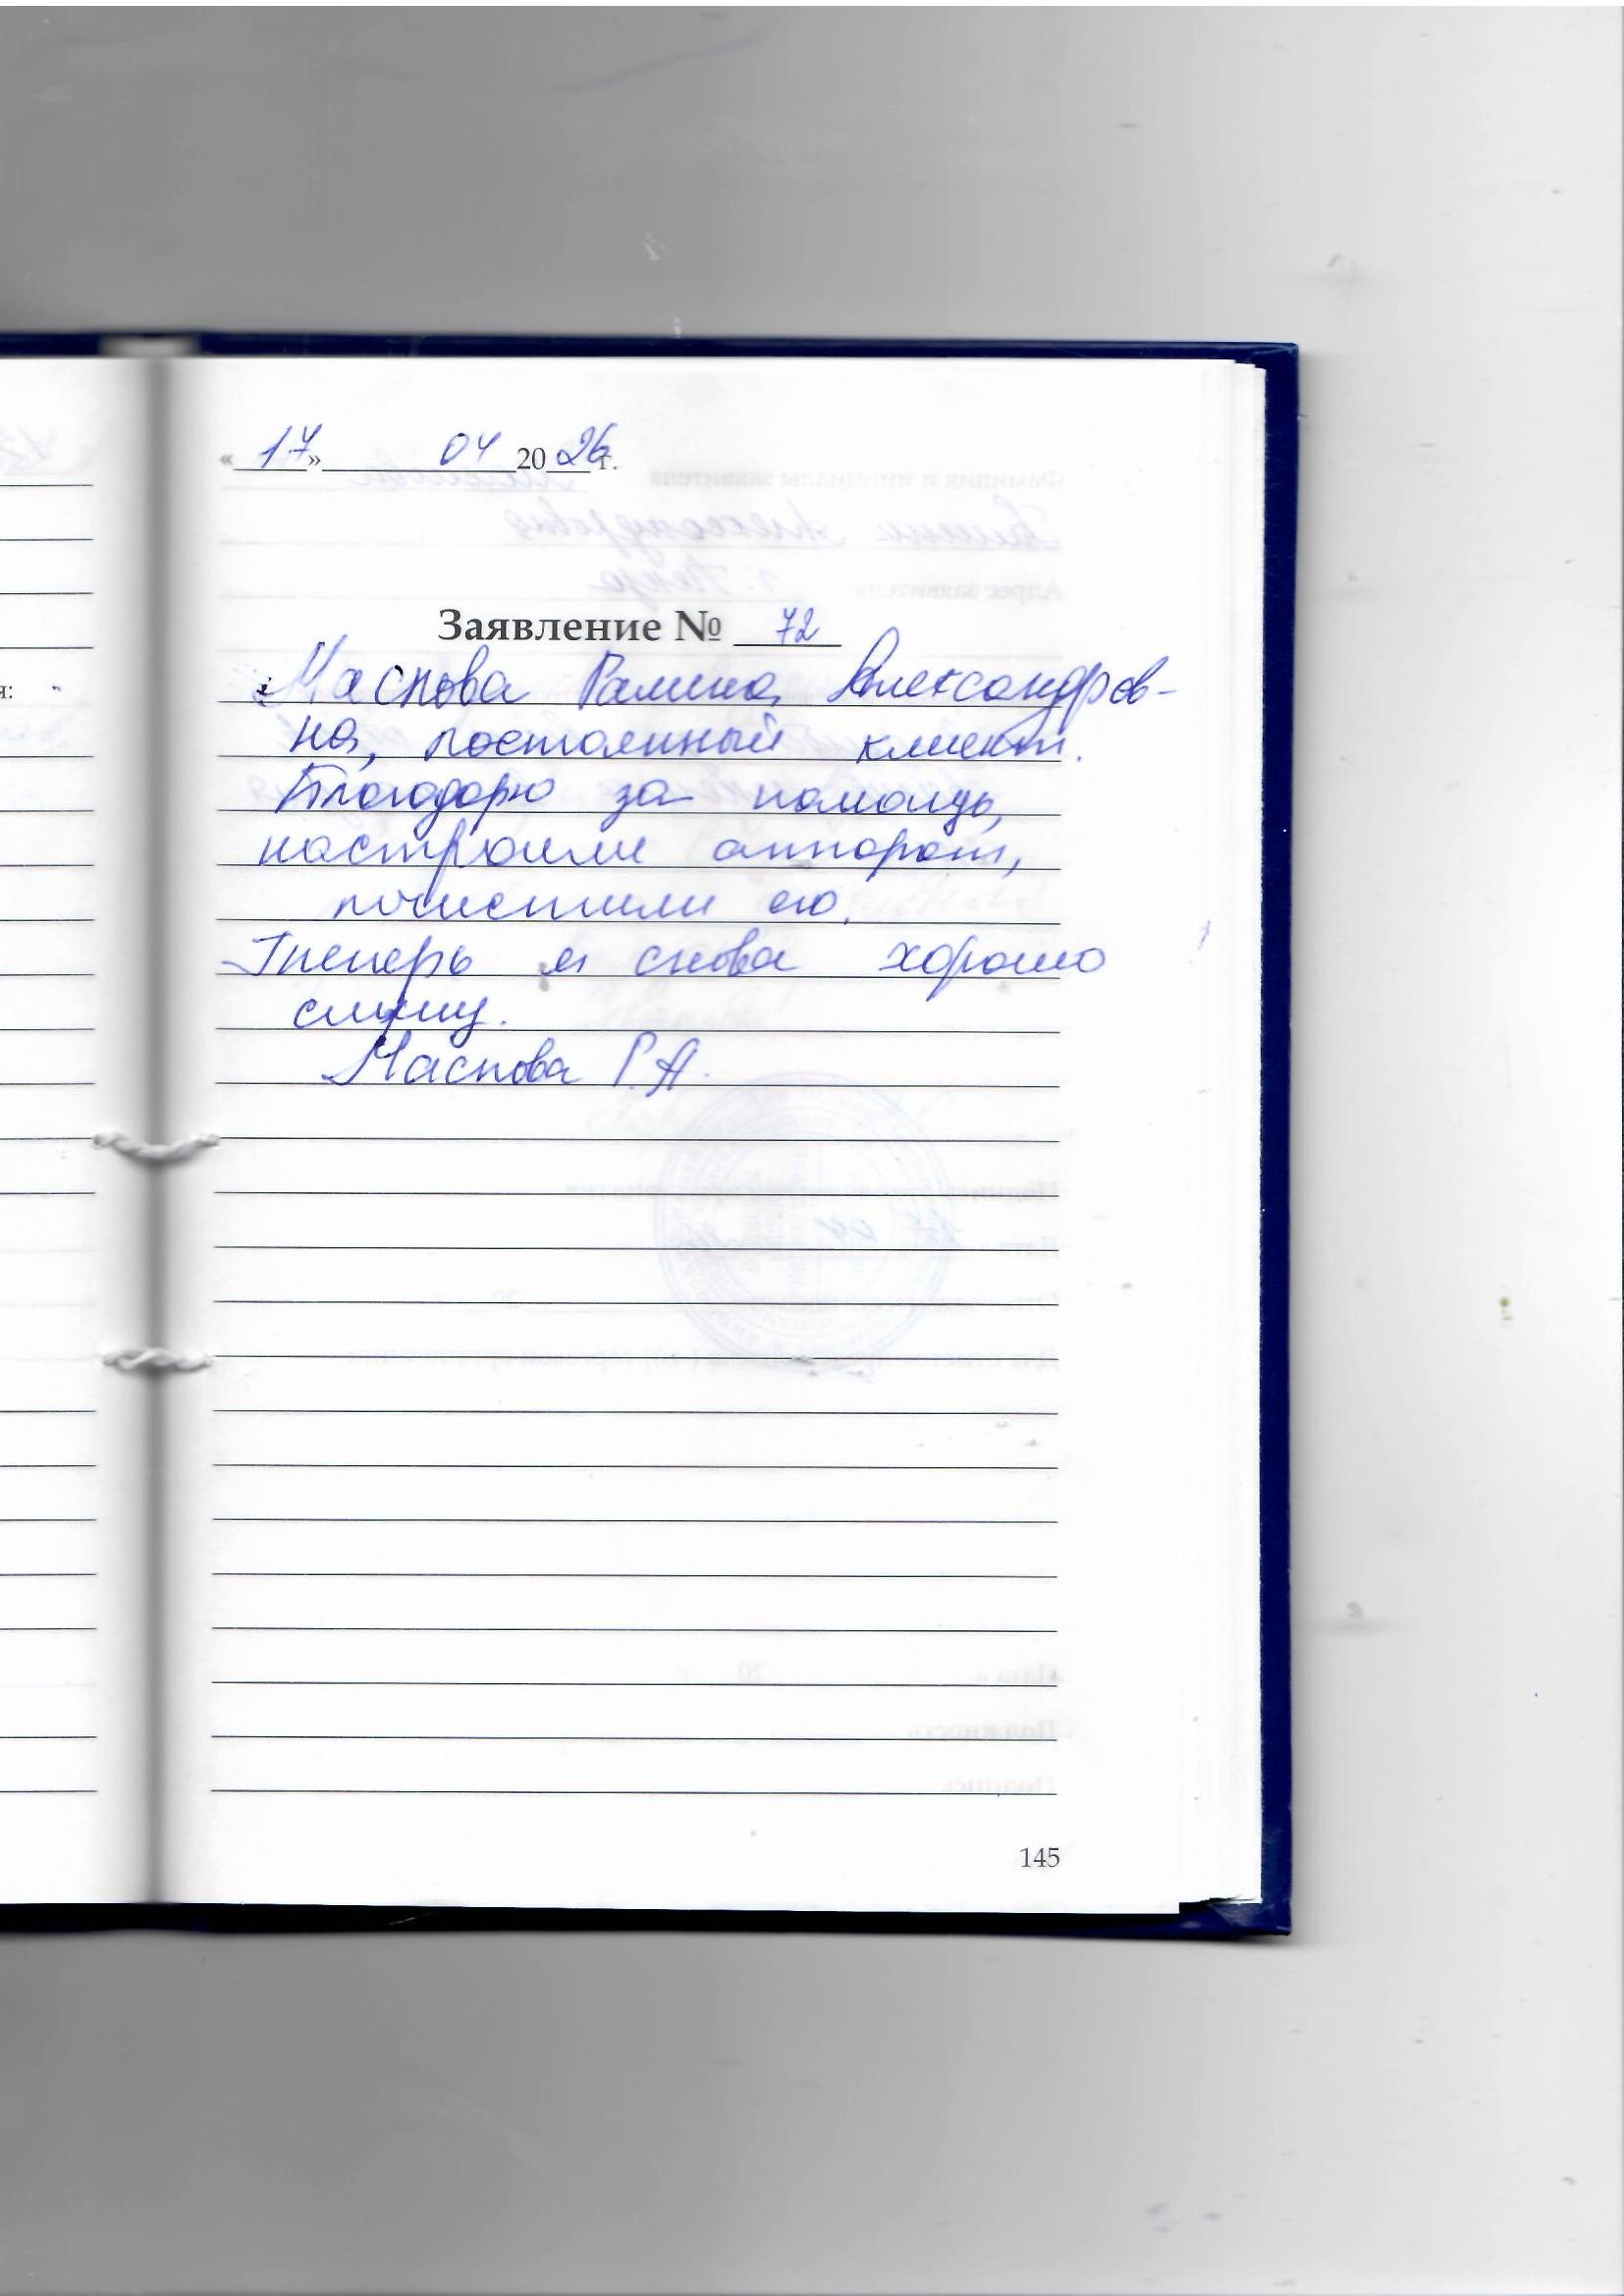 «17» 04 2026 г.
Заявление № 72
Маслова Галина Александров-
на, постоянный клиент.
Благодарю за помощь,
настроили аппарат,
почистили его.
Теперь я снова хорошо
слышу.
Маслова Г.А.
я:
145